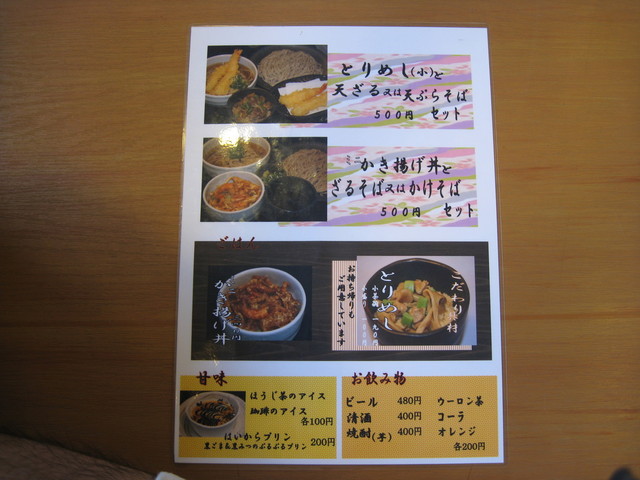 とりめし(小)と
天ざる又は天ぷらそば
500円 セット
ミニかき揚げ丼と
ざるそば又はかけそば
500円 セット
ごはん
かき揚げ丼
お持ち帰りも
ご用意しています
とりめし
こだわり
甘味
ほうじ茶のアイス
珈琲のアイス
各100円
はいからプリン
黒ごま&黒みつのぷるぷるプリン
200円
お飲み物
ビール 480円
清酒 400円
焼酎(芋) 400円
ウーロン茶
コーラ
オレンジ
各200円